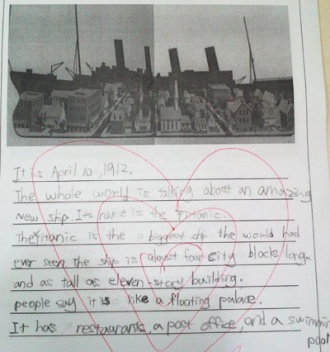 It is April 10, 1912.
The whole world is talking about an amazing
new ship. Its name is the Titanic.
The Titanic is the biggest ship the would had
ever seen the ship is almost four city blocks long
and as tall as eleven-story building.
people say it is like a floating palace.
It has restaurants, a post office and a swimming
pool